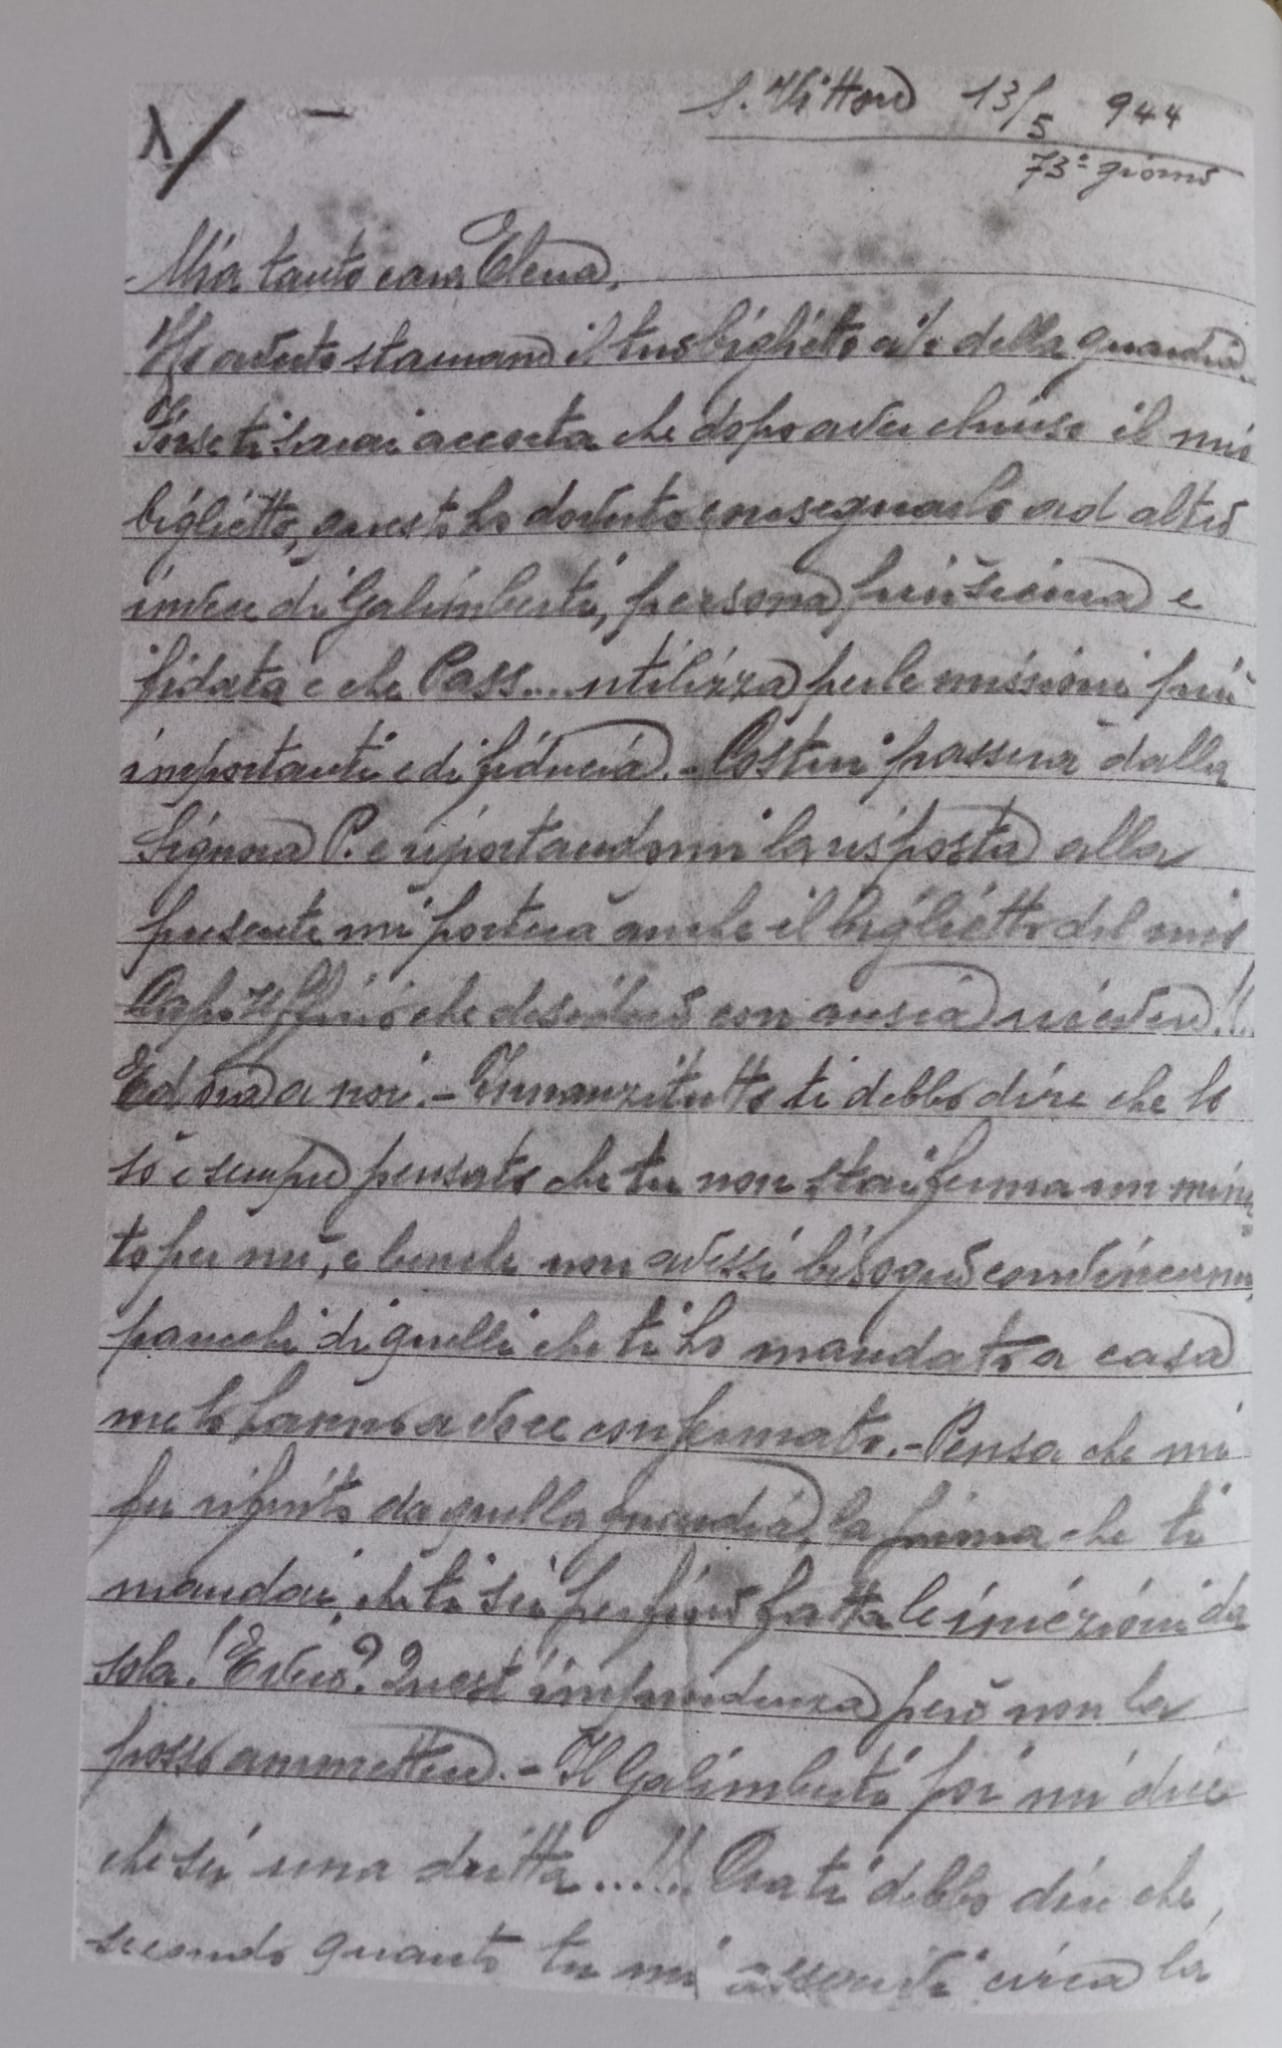 1/ -
S. Vittore 13/5 944
73° giorno
Mia tanto cara Elena,
Ho avuto stamane il tuo biglietto a/o della guardia.
Forse ti sarai accorta che dopo aver chiuso il mio
biglietto, questo ho dovuto consegnarlo ad altro
invece di Galimberti, persona più sicura e
fidata e che Pass.... utilizza per le missioni più
importanti e di fiducia. - Costui passerà dalla
Signora P. e riportandomi la risposta alla
presente mi porterà anche il biglietto del mio
Capo Ufficio che desidero con ansia ricevere!!
Ed ora a noi. - Innanzitutto ti debbo dire che lo
so e sempre pensato che tu non stai ferma un minu
to per me, e benchè non avessi bisogno convincermi,
parecchi di quelli che ti ho mandato a casa
me lo hanno a voce confermato. - Pensa che mi
fu riferito da quella guardia, la prima che ti
mandai, che ti sei perfino fatta le iniezioni da
sola! E' vero? Quest'imprudenza però non la
posso ammettere. - Il Galimberti poi mi dice
che sei una dritta...!!! Ora ti debbo dire che,
secondo quanto tu mi circa la